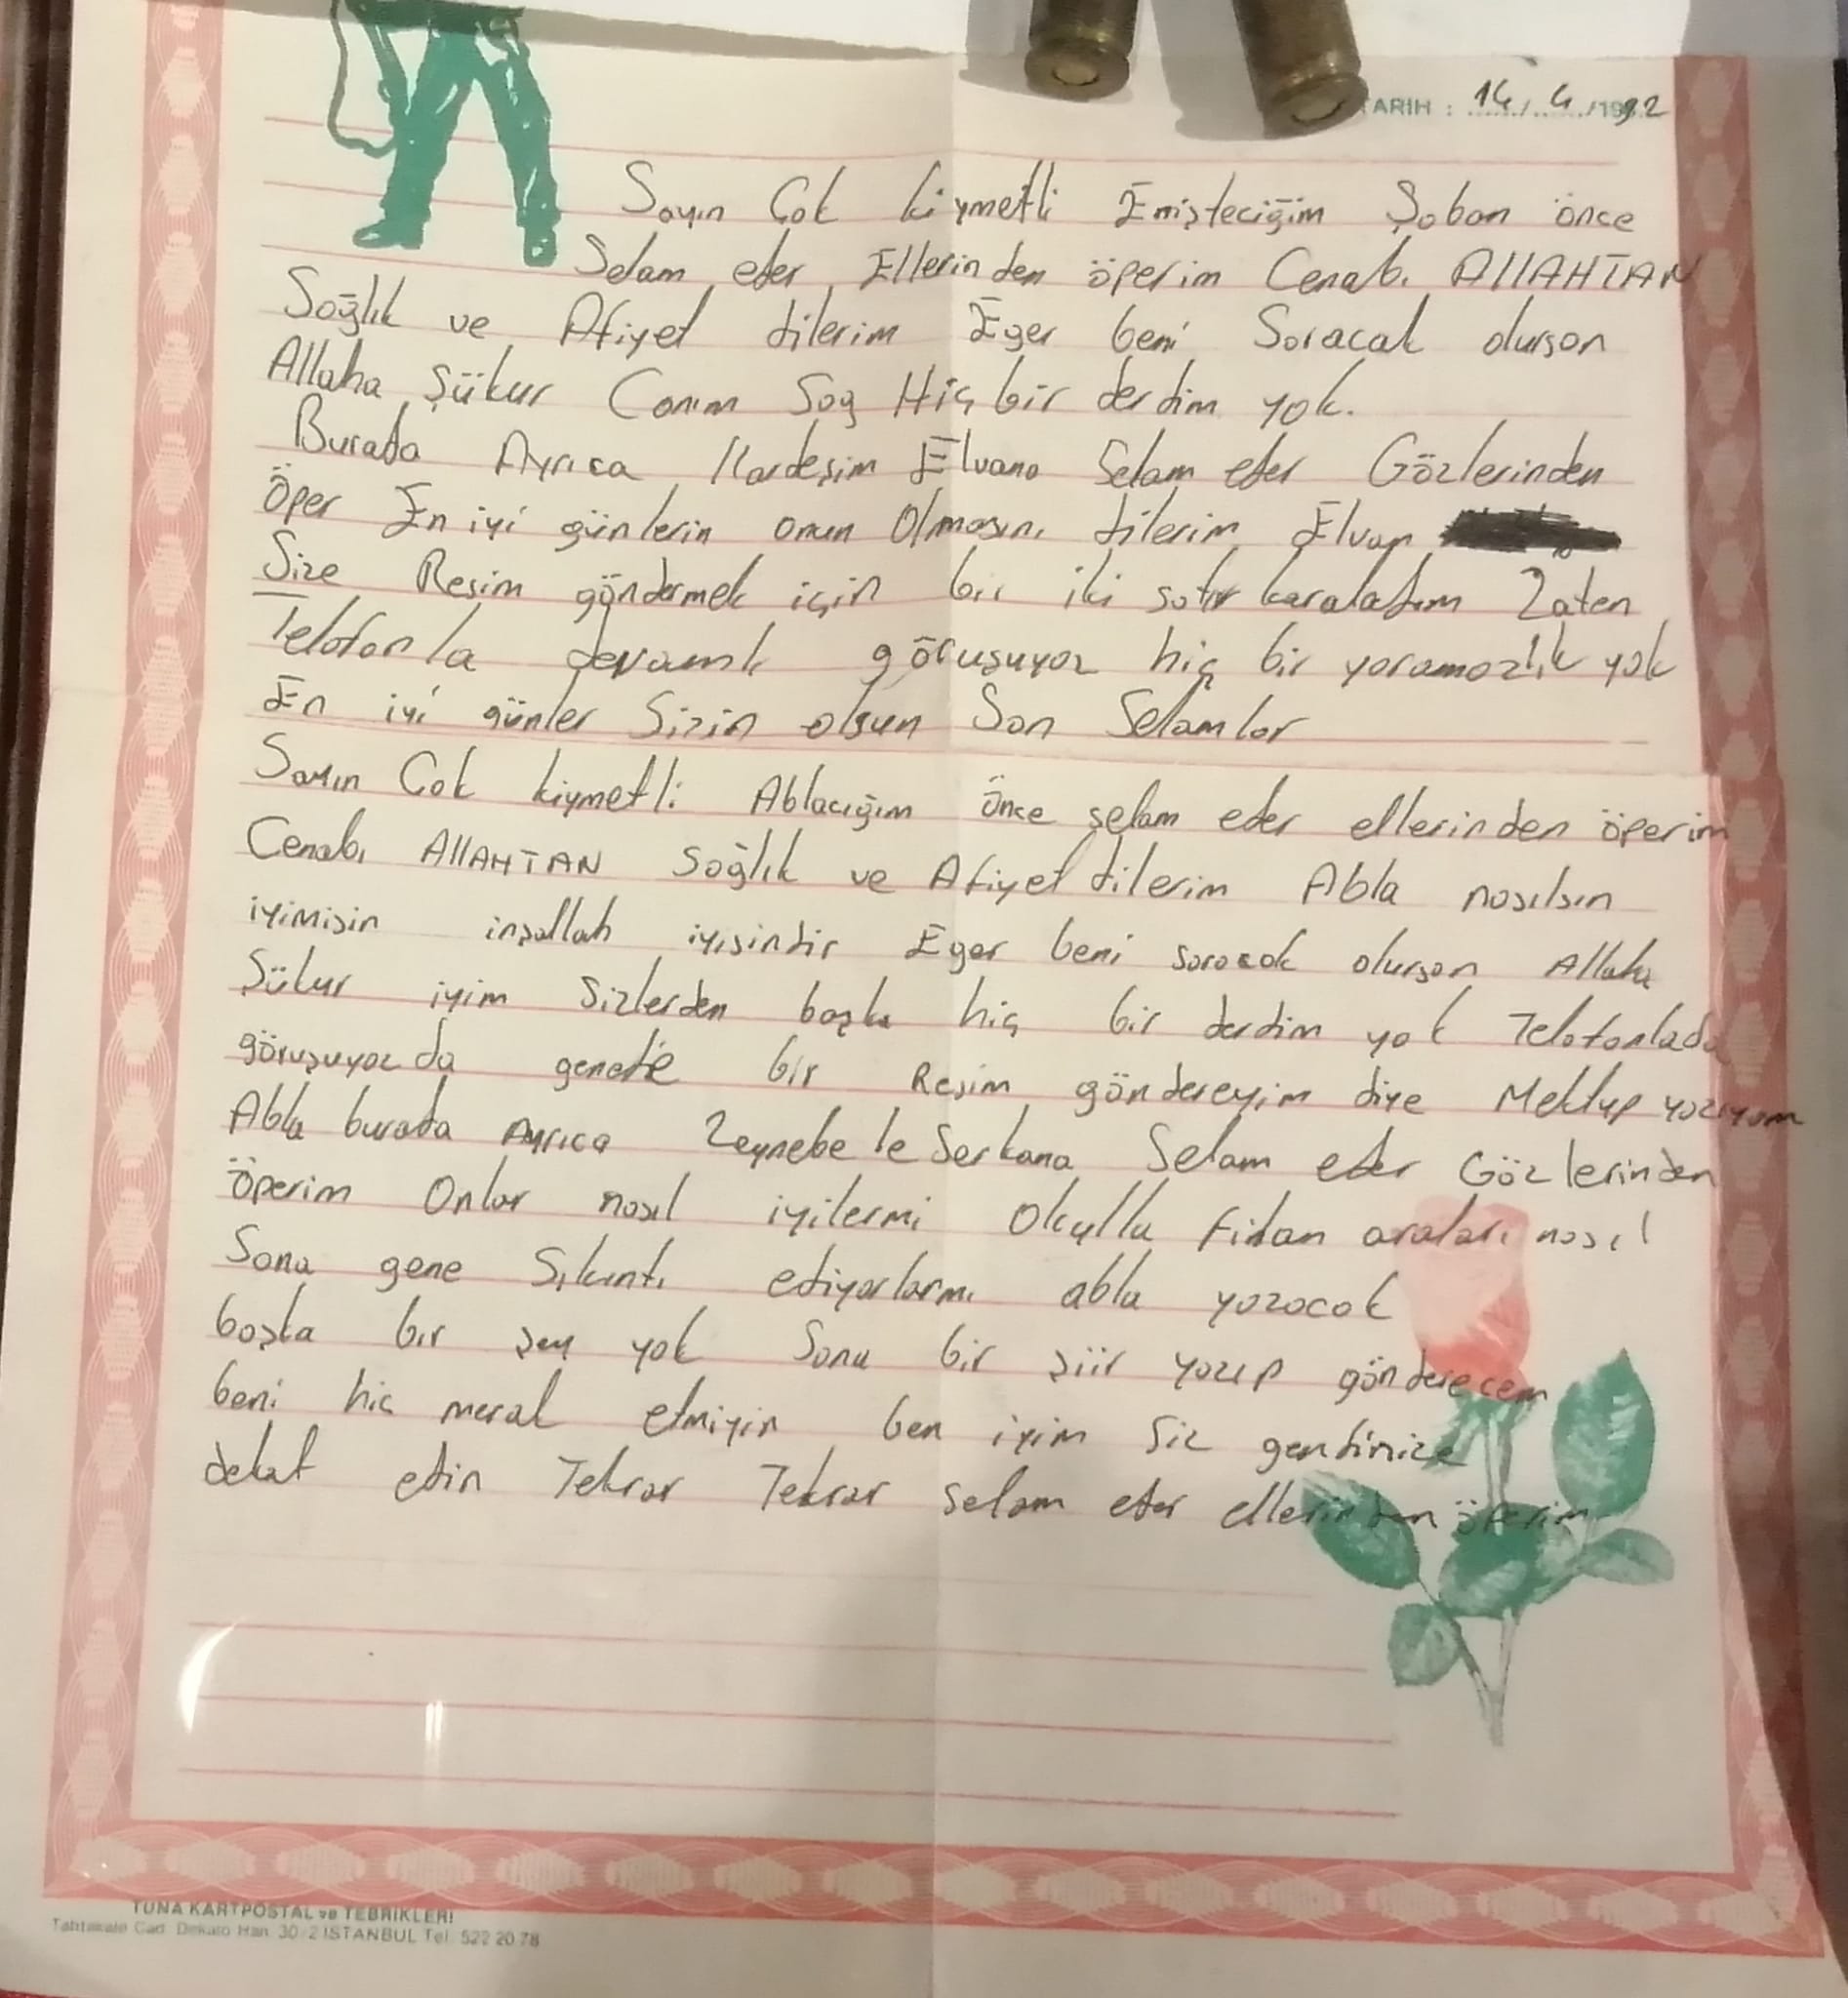 TARIH : 14 / 4 / 1992
Sayın Çok kiymetli Enişteciğim Şaban önce
Selam eder Ellerinden öperim Cenabı AllAHTAN
Sağlık ve Afiyet dilerim Eger beni Soracak olursan
Allaha Şükur Canım Sag Hiç bir derdim yok.
Burada Ayrıca Kardeşim Elvana Selam eder Gözlerinden
Öper En iyi günlerin onun Olmasını dilerim Elvan
Size Resim göndermek için bir iki satır karaladım Zaten
Telofonla devamlı göruşuyoz hiç bir yaramazlık yok
En iyi günler Sizin olsun Son Selamlar
Sayın Çok kiymetli Ablacığım Önce selam eder ellerinden öperim
Cenabı AllAHTAN Sağlık ve Afiyet dilerim Abla nasılsın
iyimisin inşallah iyisindir Eger beni soracak olursan Allaha
Şükur iyim Sizlerden başka hiç bir derdim yok Telofonlada
göruşuyoz da genede bir Resim göndereyim diye Mektup yazıyom
Abla burada Ayrıca Zeynebe le Serkana Selam eder Gözlerinden
öperim Onlar nasıl iyilermi Okulla Fidan araları nasıl
Sana gene Sıkıntı ediyorlarmı abla yazacak
başka bır şey yok Sana bir şiir yazıp gönderecem
beni hiç merak etmiyin ben iyim Siz gendinize
dekat edin Tekrar Tekrar selam eder ellerinden öperim
TUNA KARTPOSTAL ve TEBRIKLERI
Tahtakale Cad. Han 30/2 ISTANBUL Tel: 522 20 78